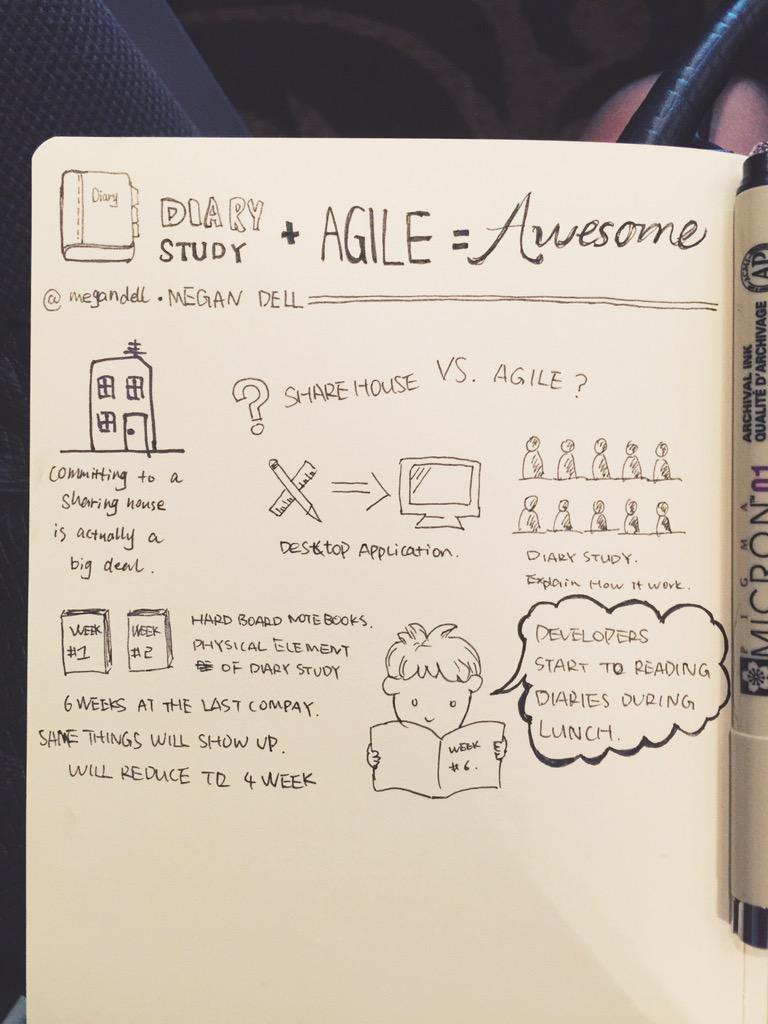 Diary
DIARY STUDY + AGILE = Awesome
@megandell • MEGAN DELL
? SHARE HOUSE VS. AGILE?
Committing to a
sharing house
is actually a
big deal.
DESKTOP APPLICATION.
DIARY STUDY.
Explain How it work.
WEEK
#1
WEEK
#2
HARD BOARD NOTEBOOKS.
PHYSICAL ELEMENT
OF DIARY STUDY
6 WEEKS AT THE LAST COMPAY.
SAME THINGS WILL SHOW UP.
WILL REDUCE TO 4 WEEK
WEEK
#6.
DEVELOPERS
START TO READING
DIARIES DURING
LUNCH.
PIGMA
MICRON 01
ARCHIVAL INK
QUALITÉ D'ARCHIVAGE
AP